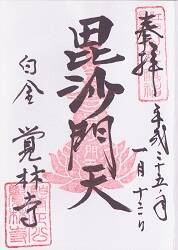 奉拝
平成二十五年
一月十二日
毘沙門天
白金
覚林寺